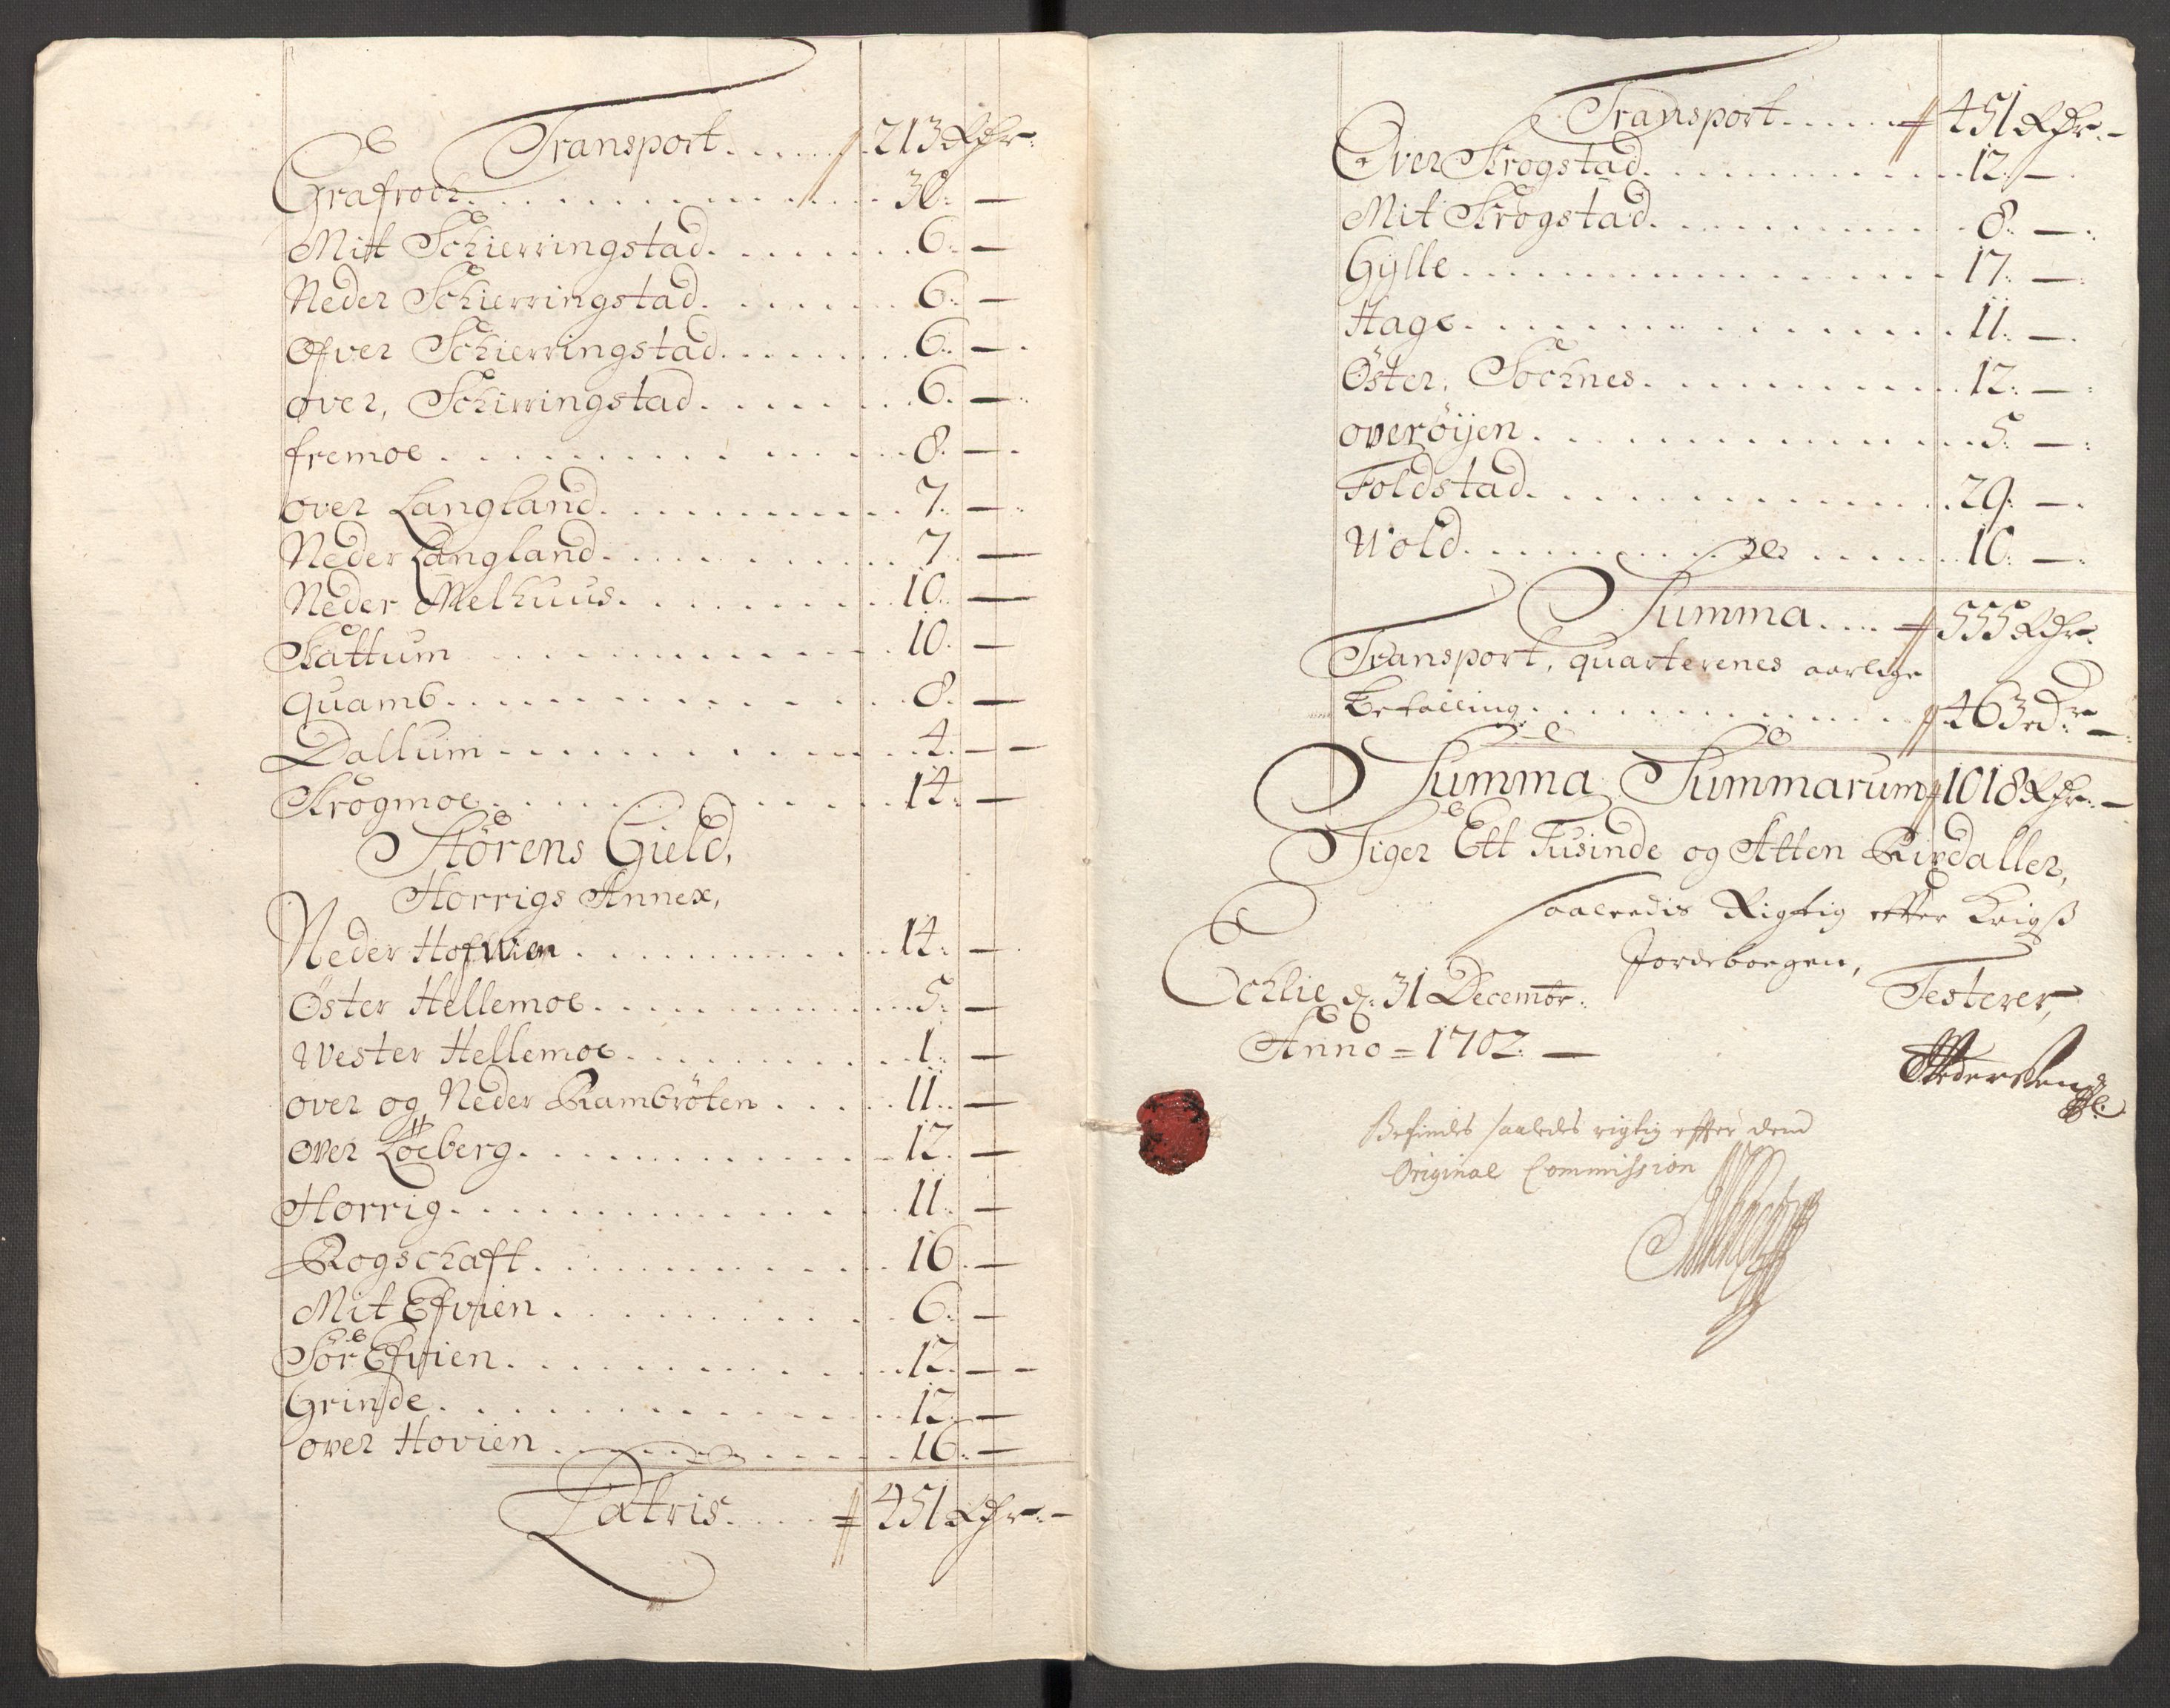 Transport . . . . . 213 Rdr:
Grafroch . . . . . 30: —
Mitt Schierringstad . . . . . 6: —
Neder Schierringstad . . . . . 6: —
Øfver Schierringstad . . . . . 6: —
over, Schirringstad . . . . . 6: —
fremoe . . . . . 8: —
over Langland . . . . . 7: —
Neder Langland . . . . . 7 —
Neder Melhuus . . . . . 10: —
Skattum . . . . . 10: —
quamb . . . . . 8: —
Dallum . . . . . 4: —
Skrogmoe . . . . . 14: —
Störens Gield,
Horrigs Annex,
Neder Hofwien . . . . . 14: —
Öster Hellemoe . . . . . 5: —
Wester Hellemoe . . . . . 1: —
over og Neder Rambröten . . . . . 11: —
over Löeberg . . . . . 12: —
Horrig . . . . . 11: —
Rogschaft . . . . . 16: —
Mit Efvien . . . . . 6: —
Sör Efvien . . . . . 12: —
Grinde . . . . . 12: —
over Hovien . . . . . 16: —
Latris . . . . 451 Rdr: —
Transport . . . . . 451 Rdr: —
Over Skrogstad . . . . . 12: —
Mit Skrogstad . . . . . 8: —
Gylle . . . . . 17: —
Hage . . . . . 11: —
Öster, Sochnes . . . . . 12: —
overöijen . . . . . 5: —
Foldstad . . . . . 29: —
Wold . . . . . 10: —
Summa . . . . 555 Rdr:
Transport, quarterenes aarlige
Betalling . . . . . 463 rdr: —
Summa Summarum 1018 Rdr: —
Siger Ett Tusinde og Atten Rixdaller,
saaledis Rigtig effter Krigs
Jordebogen,
Echlie d: 31 Decembr:
Testerer,
Anno = 1702: —
Pedersen
Befindes saaledes rigtig effter dend
Original Commission